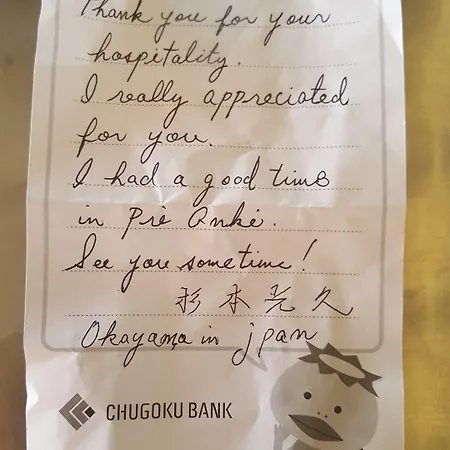 Thank you for your
hospitality.
I really appreciated
for you.
I had a good time
in Pré Anké.
See you sometime!
杉本光久
Okayama in jpan
CHUGOKU BANK